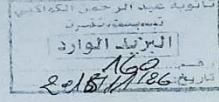 ثانوية عبد الرحمن الكواكبي
البريد الوارد
رقم 160
تاريخ 2015/11/26